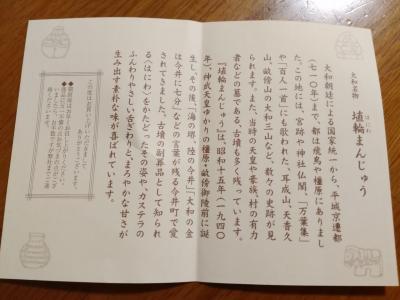 大和名物
埴輪まんじゅう
はにわ
大和朝廷による国家統一から、平城京遷都
(七一〇年)まで、都は飛鳥や橿原にありまし
た。この地には、宮跡や神社仏閣、「万葉集」
や「百人一首」にも歌われた、耳成山、天香久
山、畝傍山の大和三山など、数々の史跡が見
られます。また、当時の天皇や豪族、村の有力
者などの墓である、古墳も多く残っています。
『埴輪まんじゅう』は、昭和十五年(一九四〇
年)、神武天皇ゆかりの橿原・畝傍御陵前に誕
生し、その後、「海の堺、陸の今井」「大和の金
は今井に七分」などの言葉が残る今井町で愛
されてきました。古墳の副葬品として知られ
る〈はにわ〉をかたどったその姿や、カステラの
ふんわりやさしい舌ざわりと、まろやかな甘さが
生み出す素朴な味が喜ばれています。
この度はお買い上げいただきまして
ありがとうございます。